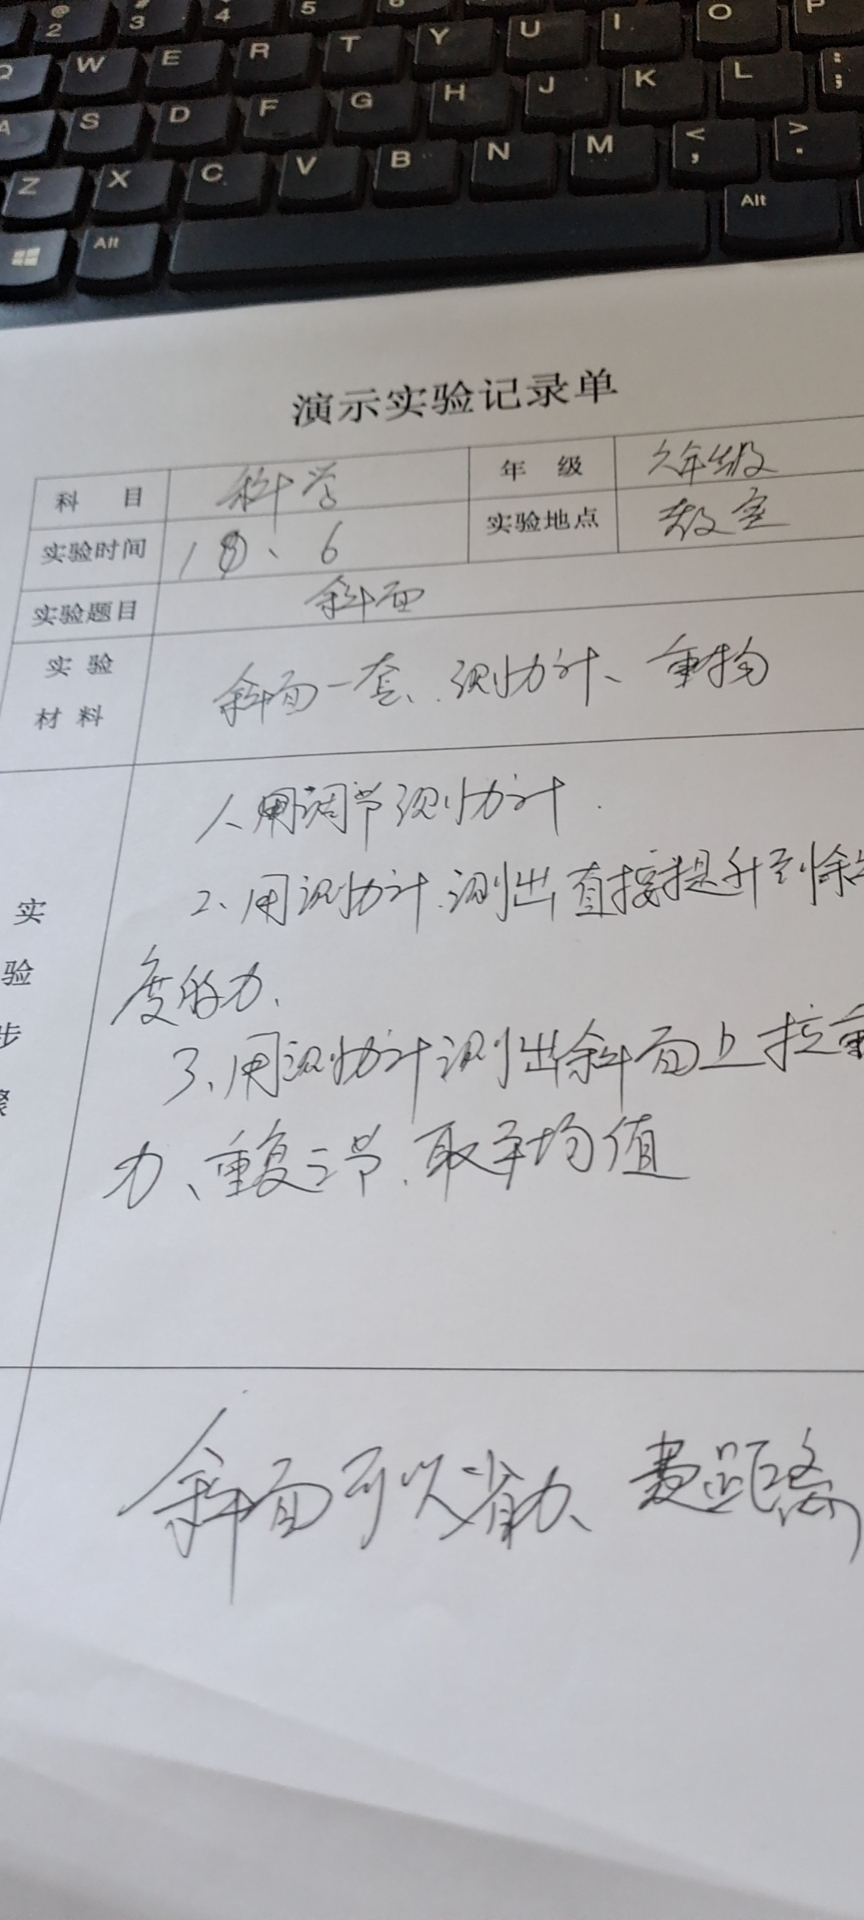 @ 2 # 3 4 5 6
Q W E R T Y U I O P
A S D F G H J K L ; :
Z X C V B N M < , > .
Alt Alt
演示实验记录单
科 目 科学 年 级 六年级
实验时间 10、6 实验地点 教室
实验题目 斜面
实 验
材 料
斜面一套、测力计、重物
实
验
步
骤
1、用调节测力计.
2、用测力计测出直接提升到斜
度的力、
3、用测力计测出斜面上拉重
力、重复三节、取平均值
斜面可以省力、费距离